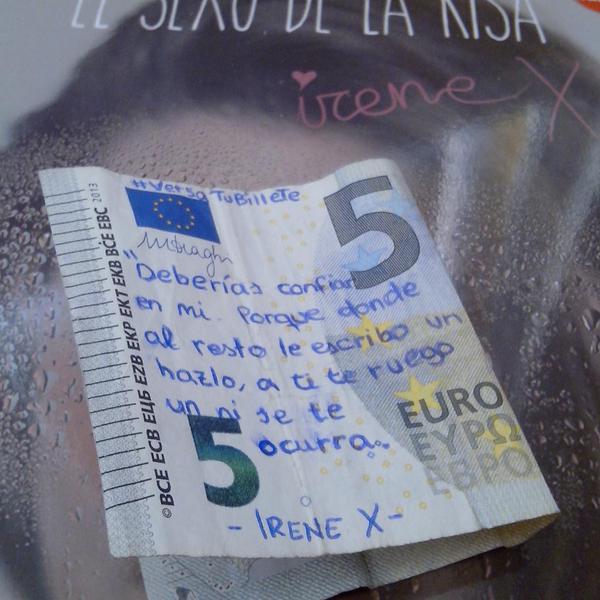 EL SEXO DE LA RISA
irene X
#VersaTuBillete
©BCE ECB ЕЦБ EZB EKP EKT EKB BĊE EBC 2013
5
"Deberías confiar
en mi. Porque donde
al resto le escribo un
hazlo, a ti te ruego
un ni se te
ocurra..
5
EURO
ΕΥΡΩ
ЕВРО
- IRENE X -